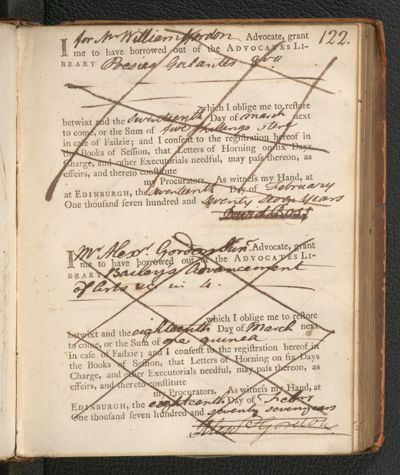 122.
I for Mr William Gordon Advocate, grant
me to have borrowed out of the ADVOCATES LI-
BRARY Poesies Galantes 8vo
which I oblige me to restore
betwixt and the Seventeenth Day of March next
to come, or the Sum of five shillings ster
in case of Failzie; and I consent to the registration hereof in
the Books of Session, that Letters of Horning on six Days
Charge, and other Executorials needful, may pass thereon, as
effeirs, and thereto constitute
my Procurators. As witness my Hand, at
at EDINBURGH, the Seventeenth Day of February
One thousand seven hundred and seventy seven years
David Ross
I Mr Alexr. Gordon Advocate, grant
me to have borrowed out of the ADVOCATES LI-
BRARY Bailey's Advancement
of Arts &c in 4.
which I oblige me to restore
betwixt and the eighteenth Day of March next
to come, or the Sum of one guinea
in case of Failzie; and I consent to the registration hereof in
the Books of Session, that Letters of Horning on six Days
Charge, and other Executorials needful, may pass thereon, as
effeirs, and thereto constitute
my Procurators. As witness my Hand, at
EDINBURGH, the eighteenth Day of Febry
One thousand seven hundred and seventy seven years
Alexr Gordon